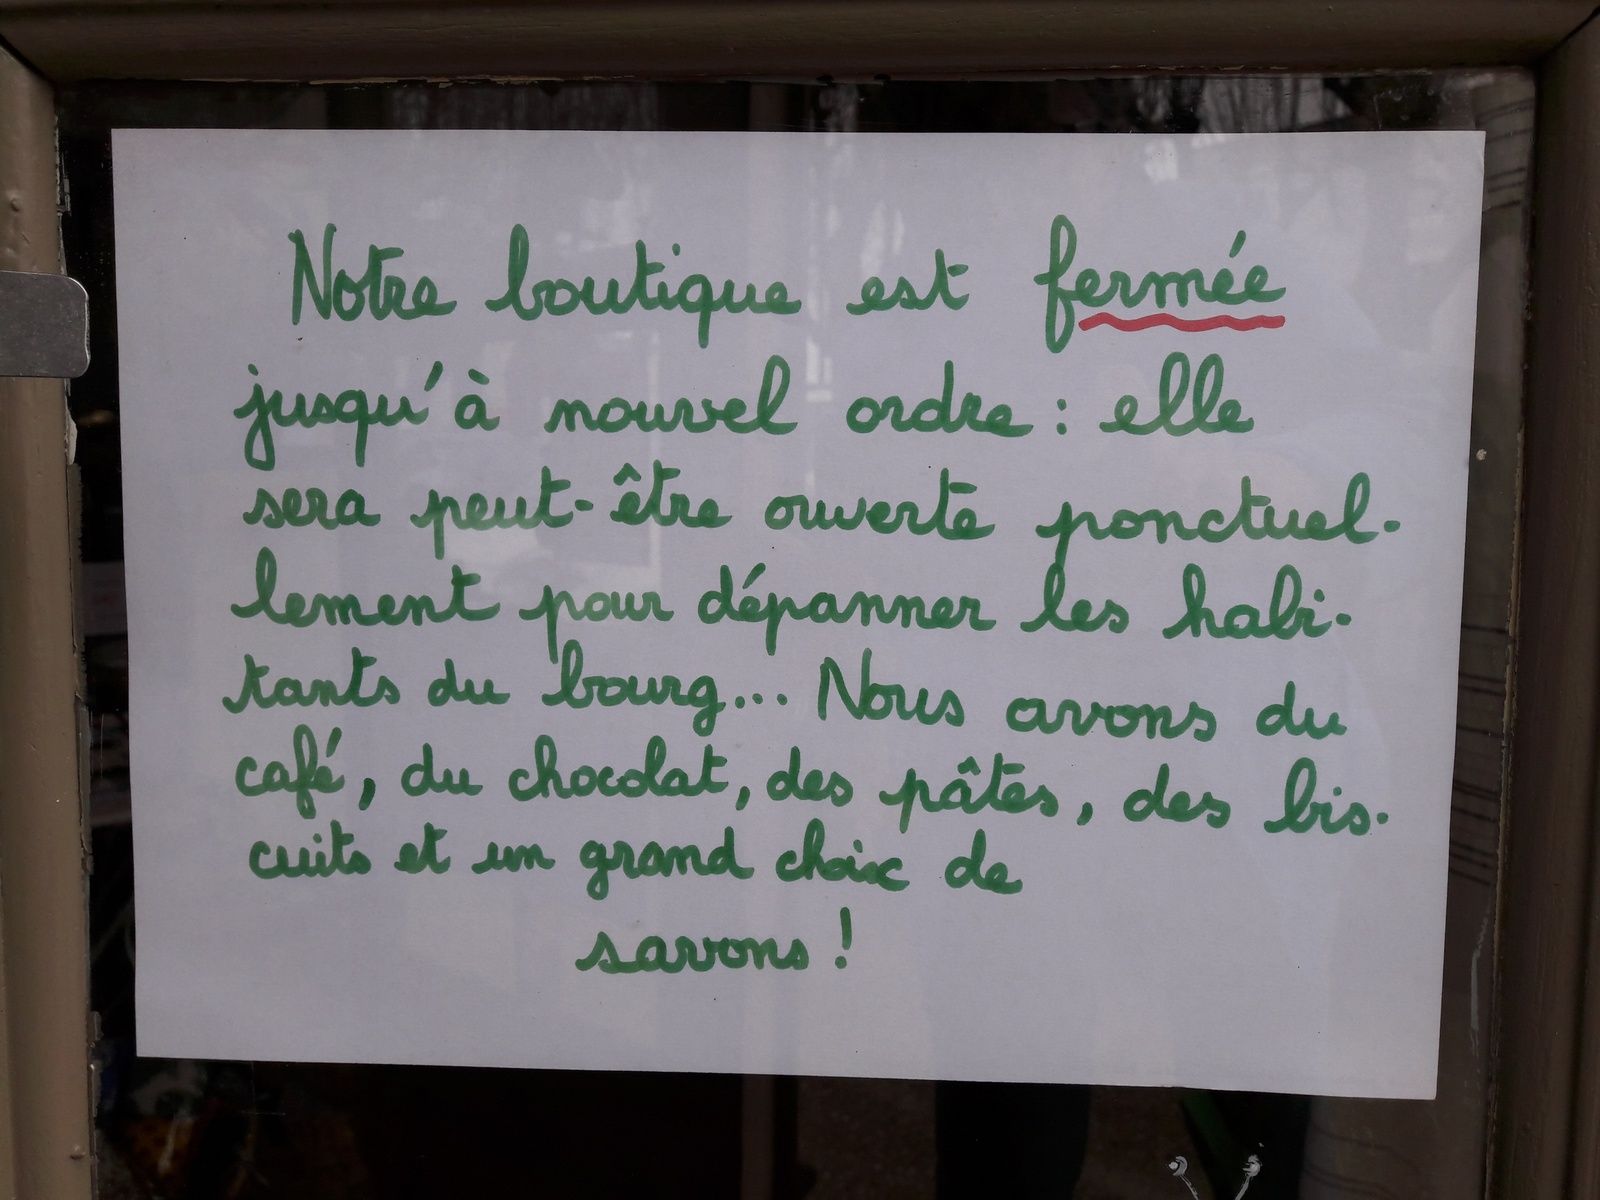 Notre boutique est fermée
jusqu'à nouvel ordre : elle
sera peut-être ouverte ponctuel-
lement pour dépanner les habi-
tants du bourg... Nous avons du
café, du chocolat, des pâtes, des bis-
cuits et un grand choix de
savons !